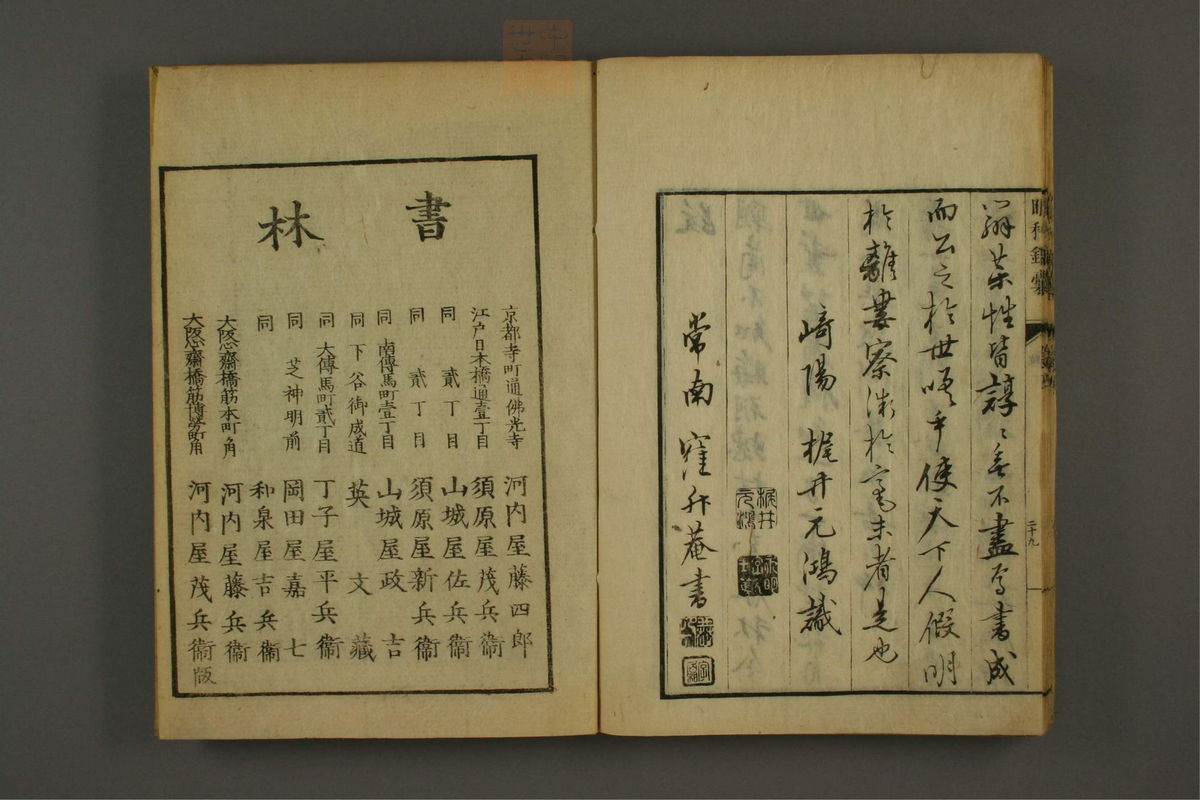 辯藥性皆諄〻無不盡焉書成
而公之於世嗟乎使天下人假明
於離婁察深於毫末者是也
崎陽 梶井元鴻識
常南 窪升菴書
梶井元鴻
二十九
書林
京都寺町通佛光寺 河内屋藤四郎
江戸日本橋通壹丁目 須原屋茂兵衞
同 貳丁目 山城屋佐兵衞
同 貳丁目 須原屋新兵衞
同 南傳馬町壹丁目 山城屋政吉
同 下谷御成道 英文藏
同 大傳馬町貳丁目 丁子屋平兵衞
同 芝神明前 岡田屋嘉七
同 和泉屋吉兵衞
大阪心齋橋筋本町角 河内屋藤兵衞
大阪心齋橋筋博勞町角 河内屋茂兵衞版